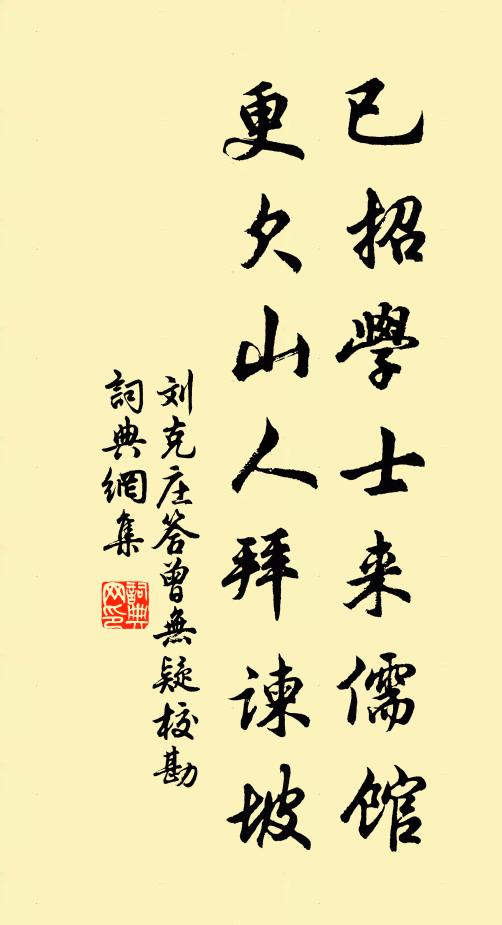 已招學士来儒馆
更欠山人拜諫坡
刘克庄答曾無疑校勘
詞典網集
詞典網印